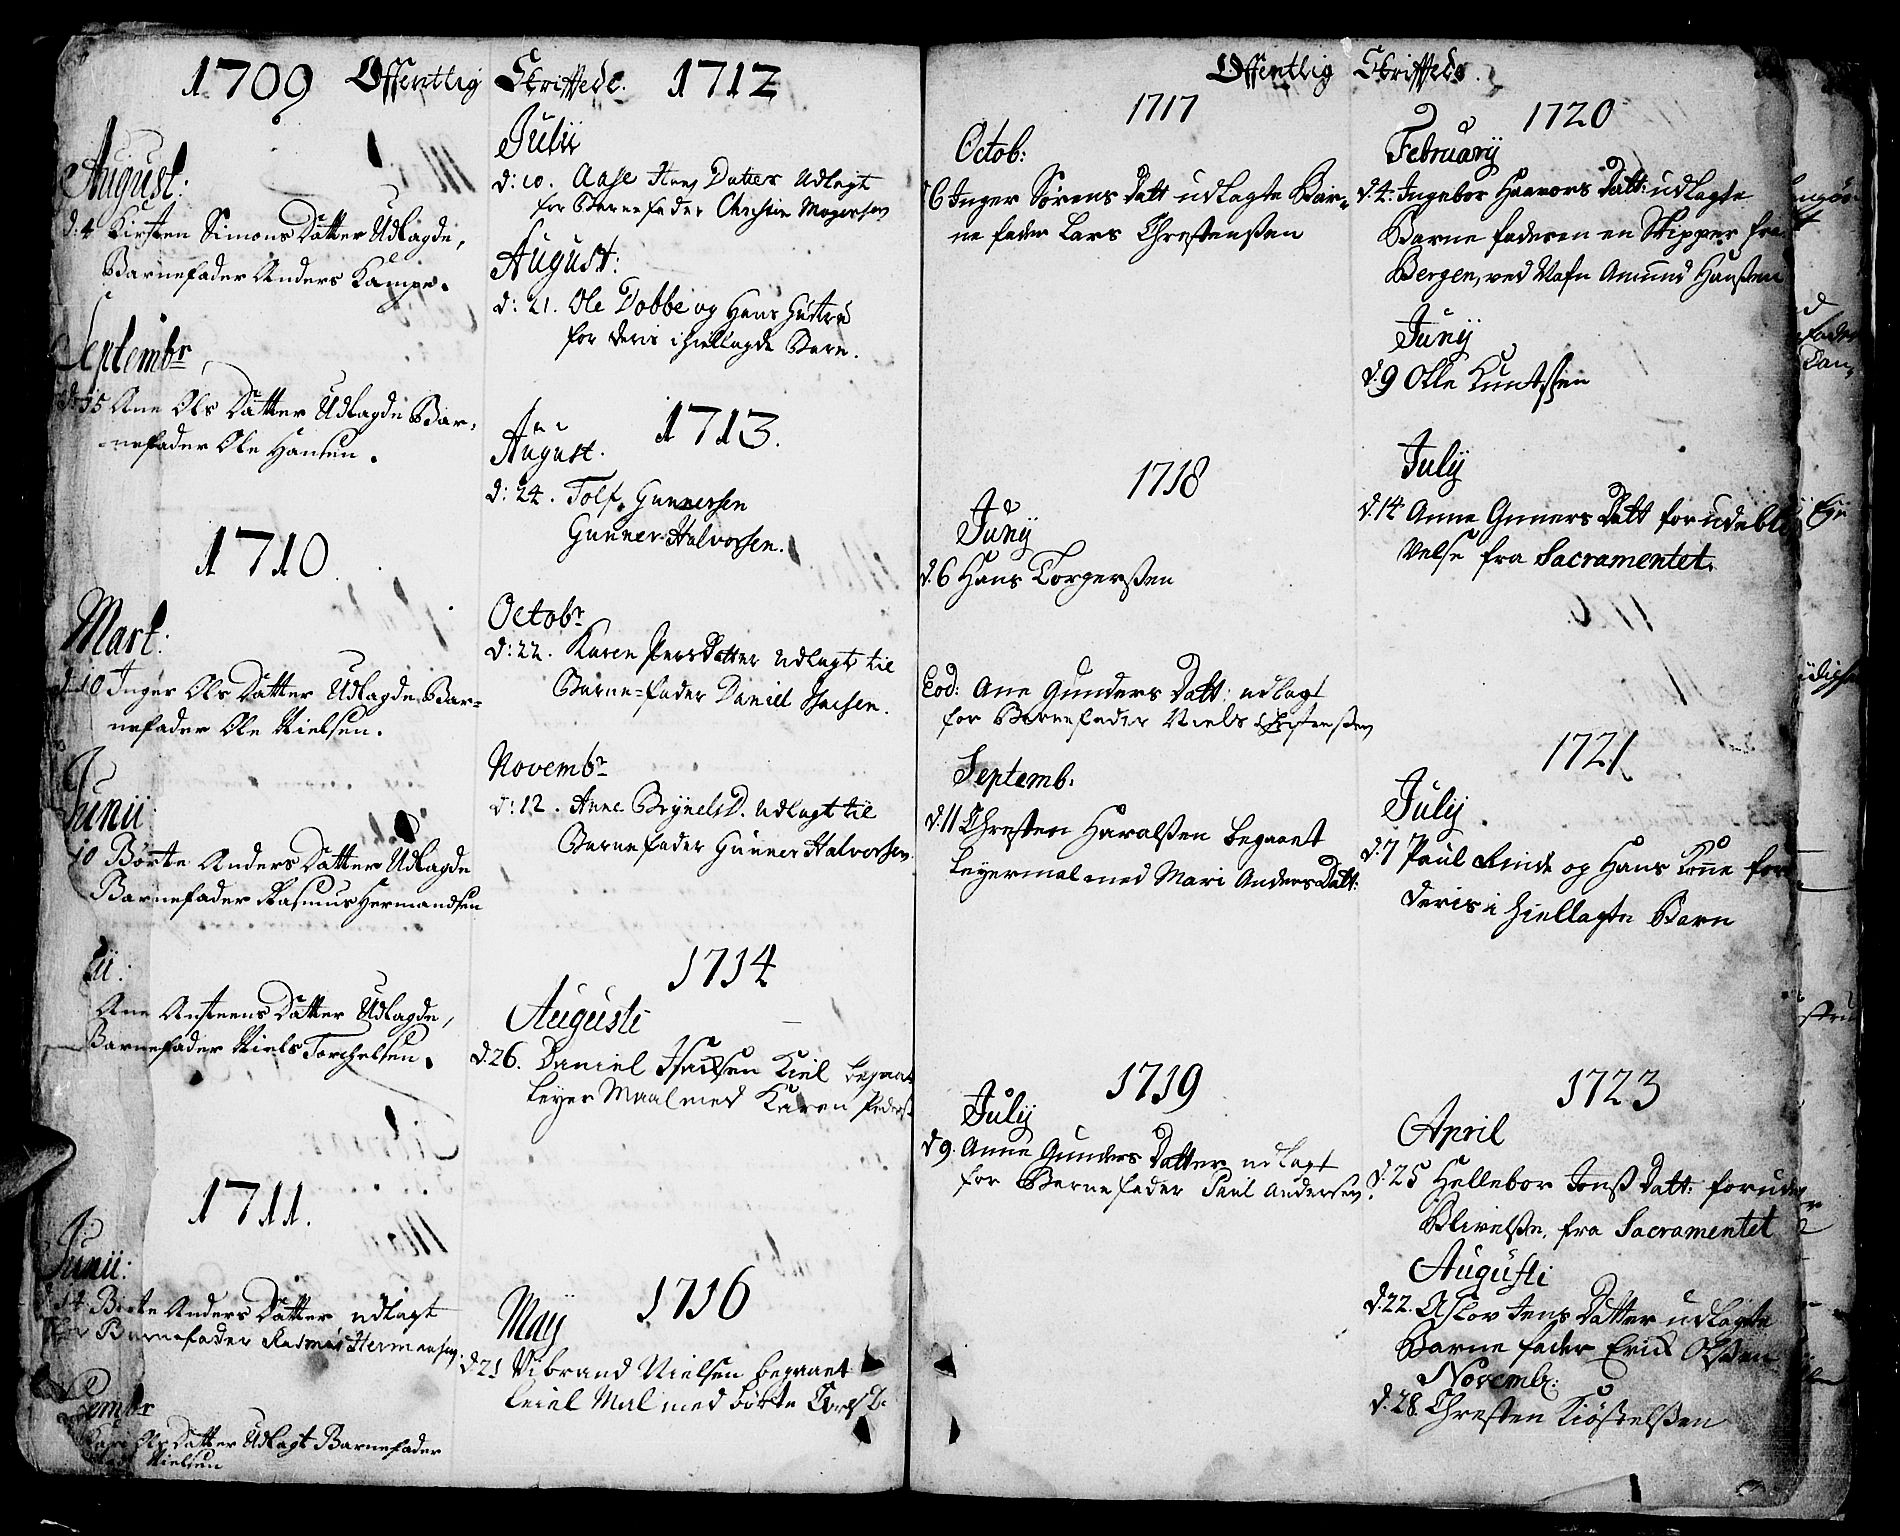 Offentlig Skriftede.
1709
August:
d. 4 Kirsten Simons Datter Udlagde,
Barnefader Anders Kampe.
Septembr
d. 15 Ane Ols Datter Udlagde Bar-
nefader Ole Hansen.
1710
Mart:
d. 10 Inger Ols Datter Udlagde Bar-
nefader Ole Nielsen.
Junii
10 Børte Anders Datter Udlagde
Barnefader Rasmus Hermandsen
lii:
Ane Anstens Datter Udlagde,
Barnefader Niels Torchelsen.
1711.
Junii:
14 Birte Anders Datter, udlagt
Barnefader Rasmus Hermansen
embr
Kari Ols Datter Udlagt Barnefader
Nielsen
1712
Julii
d: 10. Aase Hans Datter Udlagt
for Barnefader Christen Mogensen
August:
d: 21. Ole Dobbe og Hans
for deris ihiellagde Barn.
1713.
August.
d: 24. Tolf Gunnersen
Gunner Halvorsen.
Octobr
d: 22. Karen Pers Datter Udlagt til
Barne=fader Daniel Isacsen.
Novembr
d: 12. Anne Brynels D. Udlagt til
Barnefader Gunner Halvorsen
1714
Augusti
d. 26. Daniel Isacsen Kiel begaaet
Leyer Maal med Karen Peders
1716
Maij
d. 21 Vibrand Nielsen begaaet
Leiel Mal med Børte
Offentlig Skriftede.
1717
Octob:
6 Inger Sørens Datt udlagte Bar-
ne fader Lars Chrestenßen
1718
Junij
d. 6 Hans Torgerßen
Eod: Ane Gunders Datt: udlagt
for Barnefader Niels Christenßen
Septemb:
d. 11 Chresten Haralßen begaaet
Leyermal med Mari Anders Datt:
1719
Julij
d. 9. Anne Gunders Datter udlagt
for Barnefader Paul Andersen.
1720
Februarij
d. 4. Ingebor Haavors Datt: udlagte
Barne faderen en Skipper fra
Bergen, ved Nafn Amund Hanßen
Junij
d. 9 Olle Kuntßen
Julij
d. 14 Anne Guners Datt for udebli
velse fra Sacramentet.
1721
Julij
d. 7 Paul Linde og Hans Tone for
deris i hiellagte Barn
1723
April
d. 25 Hellebor Jonß Datt: for ude
Blivelße, fra Sacramentet
Augusti
d. 22. Aslov Jens Datter udlagte
Barne fader Erick Olßen
Novemb:
d. 28. Chresten Kiößtelßen